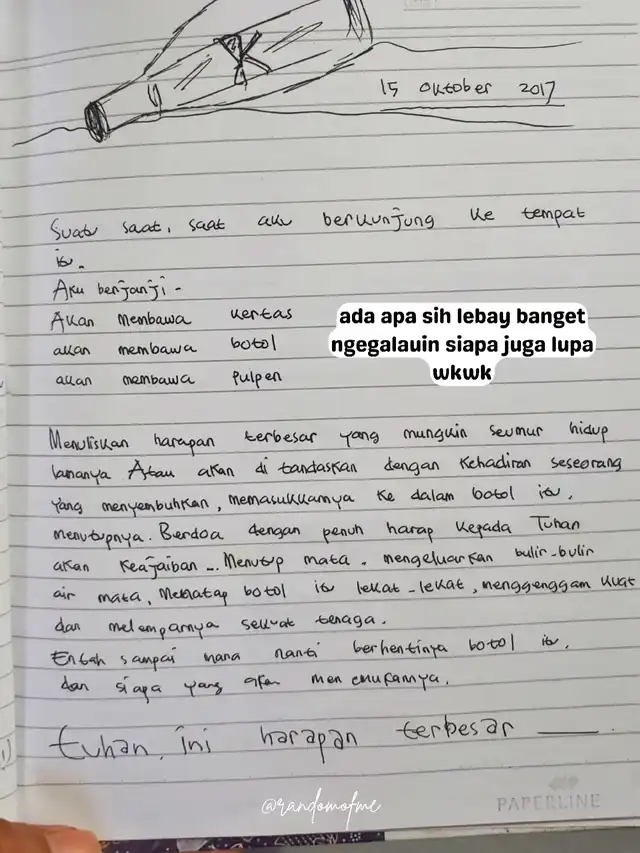 15 Oktober 2017
Suatu saat, saat aku berkunjung ke tempat
itu.
Aku berjanji -
Akan Membawa kertas
akan membawa botol
akan membawa Pulpen
ada apa sih lebay banget
ngegalauin siapa juga lupa
wkwk
Menuliskan harapan terbesar yang mungkin seumur hidup
lamanya Atau akan di tandaskan dengan Kehadiran seseorang
yang menyembuhkan, memasukkannya ke dalam botol itu,
menutupnya. Berdoa dengan penuh harap kepada Tuhan
akan Keajaiban ... Menutup mata. mengeluarkan bulir-bulir
air mata, Menatap botol itu lekat-lekat, menggenggam kuat
dan melemparnya sekuat tenaga.
Entah sampai mana nanti berhentinya botol itu,
dan siapa yang akan menemukannya.
tuhan, ini harapan terbesar ____.
@randomofme
PAPERLINE